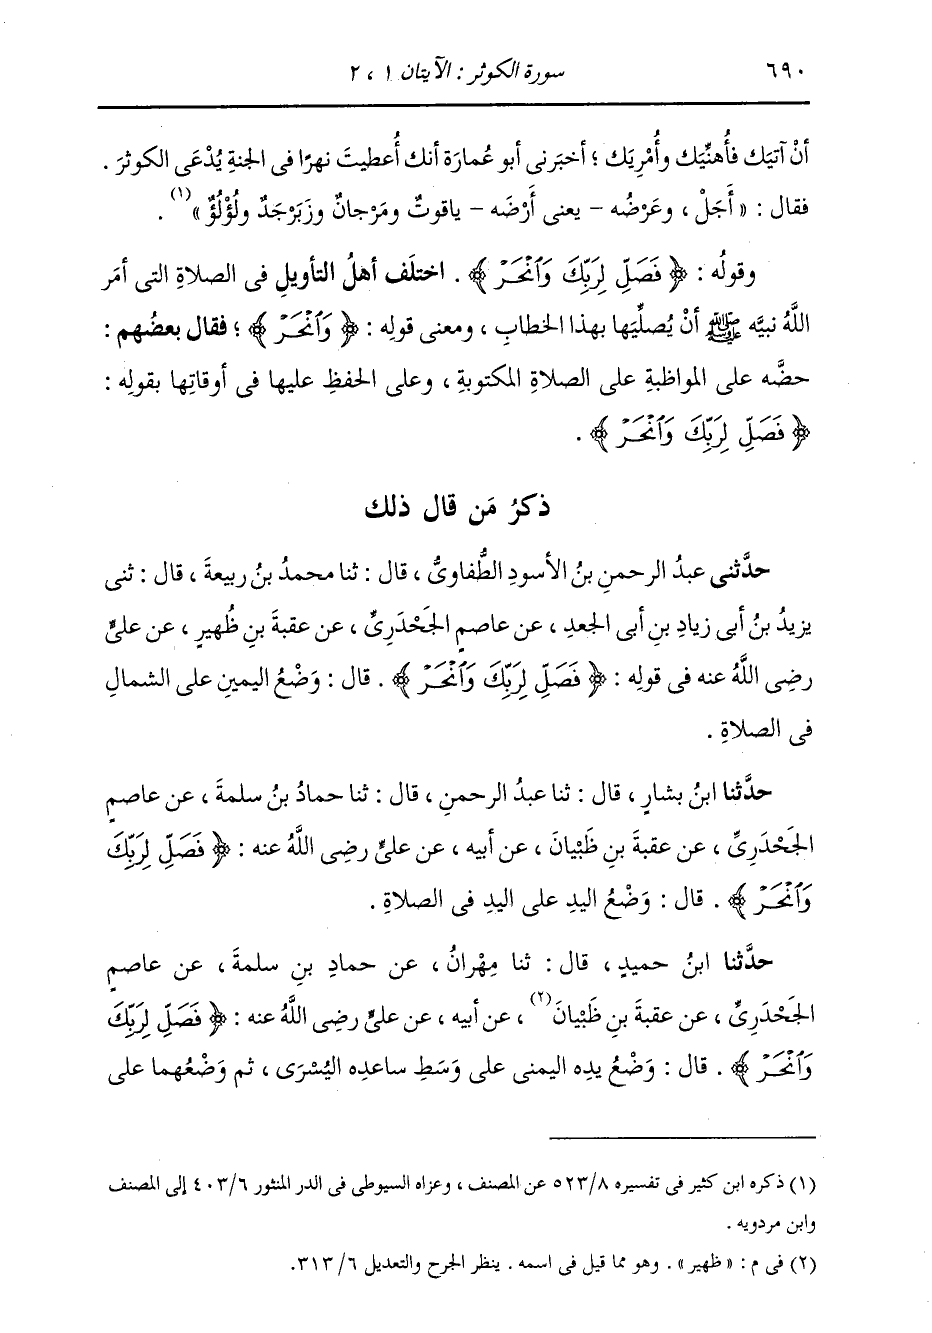 ٦٩٠ سورة الكوثر : الآيتان ١ ، ٢
أنْ آتيَك فأُهنِّيَك وأُمْرِيَك ؛ أخبَرنى أبو عُمارَة أنك أُعطيتَ نهرًا فى الجنةِ يُدْعَى الكوثرَ .
فقال : « أَجَلْ ، وعَرْضُه – يعنى أَرْضَه – ياقوتٌ ومَرْجانٌ وزَبَرْجَدٌ ولُؤْلُؤٌ »(١) .
وقولُه : ﴿ فَصَلِّ لِرَبِّكَ وَٱنْحَرْ ﴾ . اختلَف أهلُ التأويلِ فى الصلاةِ التى أمَر
اللَّهُ نبيَّه ﷺ أنْ يُصلِّيَها بهذا الخطابِ ، ومعنى قولِه : ﴿ وَٱنْحَرْ ﴾ ؛ فقال بعضُهم :
حضَّه على المواظبةِ على الصلاةِ المكتوبةِ ، وعلى الحفظِ عليها فى أوقاتِها بقولِه :
﴿ فَصَلِّ لِرَبِّكَ وَٱنْحَرْ ﴾ .
ذكرُ مَن قال ذلك
حدَّثنى عبدُ الرحمنِ بنُ الأسودِ الطُّفاوىُّ ، قال : ثنا محمدُ بنُ ربيعةَ ، قال : ثنى
يزيدُ بنُ أبى زيادِ بنِ أبى الجعدِ ، عن عاصمٍ الجَحْدَرِىِّ ، عن عقبةَ بنِ ظُهيرٍ ، عن علىٍّ
رضِى اللَّهُ عنه فى قولِه : ﴿ فَصَلِّ لِرَبِّكَ وَٱنْحَرْ ﴾ . قال : وَضْعُ اليمينِ على الشمالِ
فى الصلاةِ .
حدَّثنا ابنُ بشارٍ ، قال : ثنا عبدُ الرحمنِ ، قال : ثنا حمادُ بنُ سلمةَ ، عن عاصمٍ
الجَحْدَرِىِّ ، عن عقبةَ بنِ ظَبْيانَ ، عن أبيه ، عن علىٍّ رضِى اللَّهُ عنه : ﴿ فَصَلِّ لِرَبِّكَ
وَٱنْحَرْ ﴾ . قال : وَضْعُ اليدِ على اليدِ فى الصلاةِ .
حدَّثنا ابنُ حميدٍ ، قال : ثنا مِهْرانُ ، عن حمادِ بنِ سلمةَ ، عن عاصمٍ
الجَحْدَرِىِّ ، عن عقبةَ بنِ ظَبْيانَ(٢) ، عن أبيه ، عن علىٍّ رضِى اللَّهُ عنه : ﴿ فَصَلِّ لِرَبِّكَ
وَٱنْحَرْ ﴾ . قال : وَضْعُ يدِه اليمنى على وَسَطِ ساعدِه اليُسْرَى ، ثم وَضْعُهما على
(١) ذكره ابن كثير فى تفسيره ٥٢٣/٨ عن المصنف ، وعزاه السيوطى فى الدر المنثور ٤٠٣/٦ إلى المصنف
وابن مردويه .
(٢) فى م : « ظهير » . وهو مما قيل فى اسمه . ينظر الجرح والتعديل ٣١٣/٦.